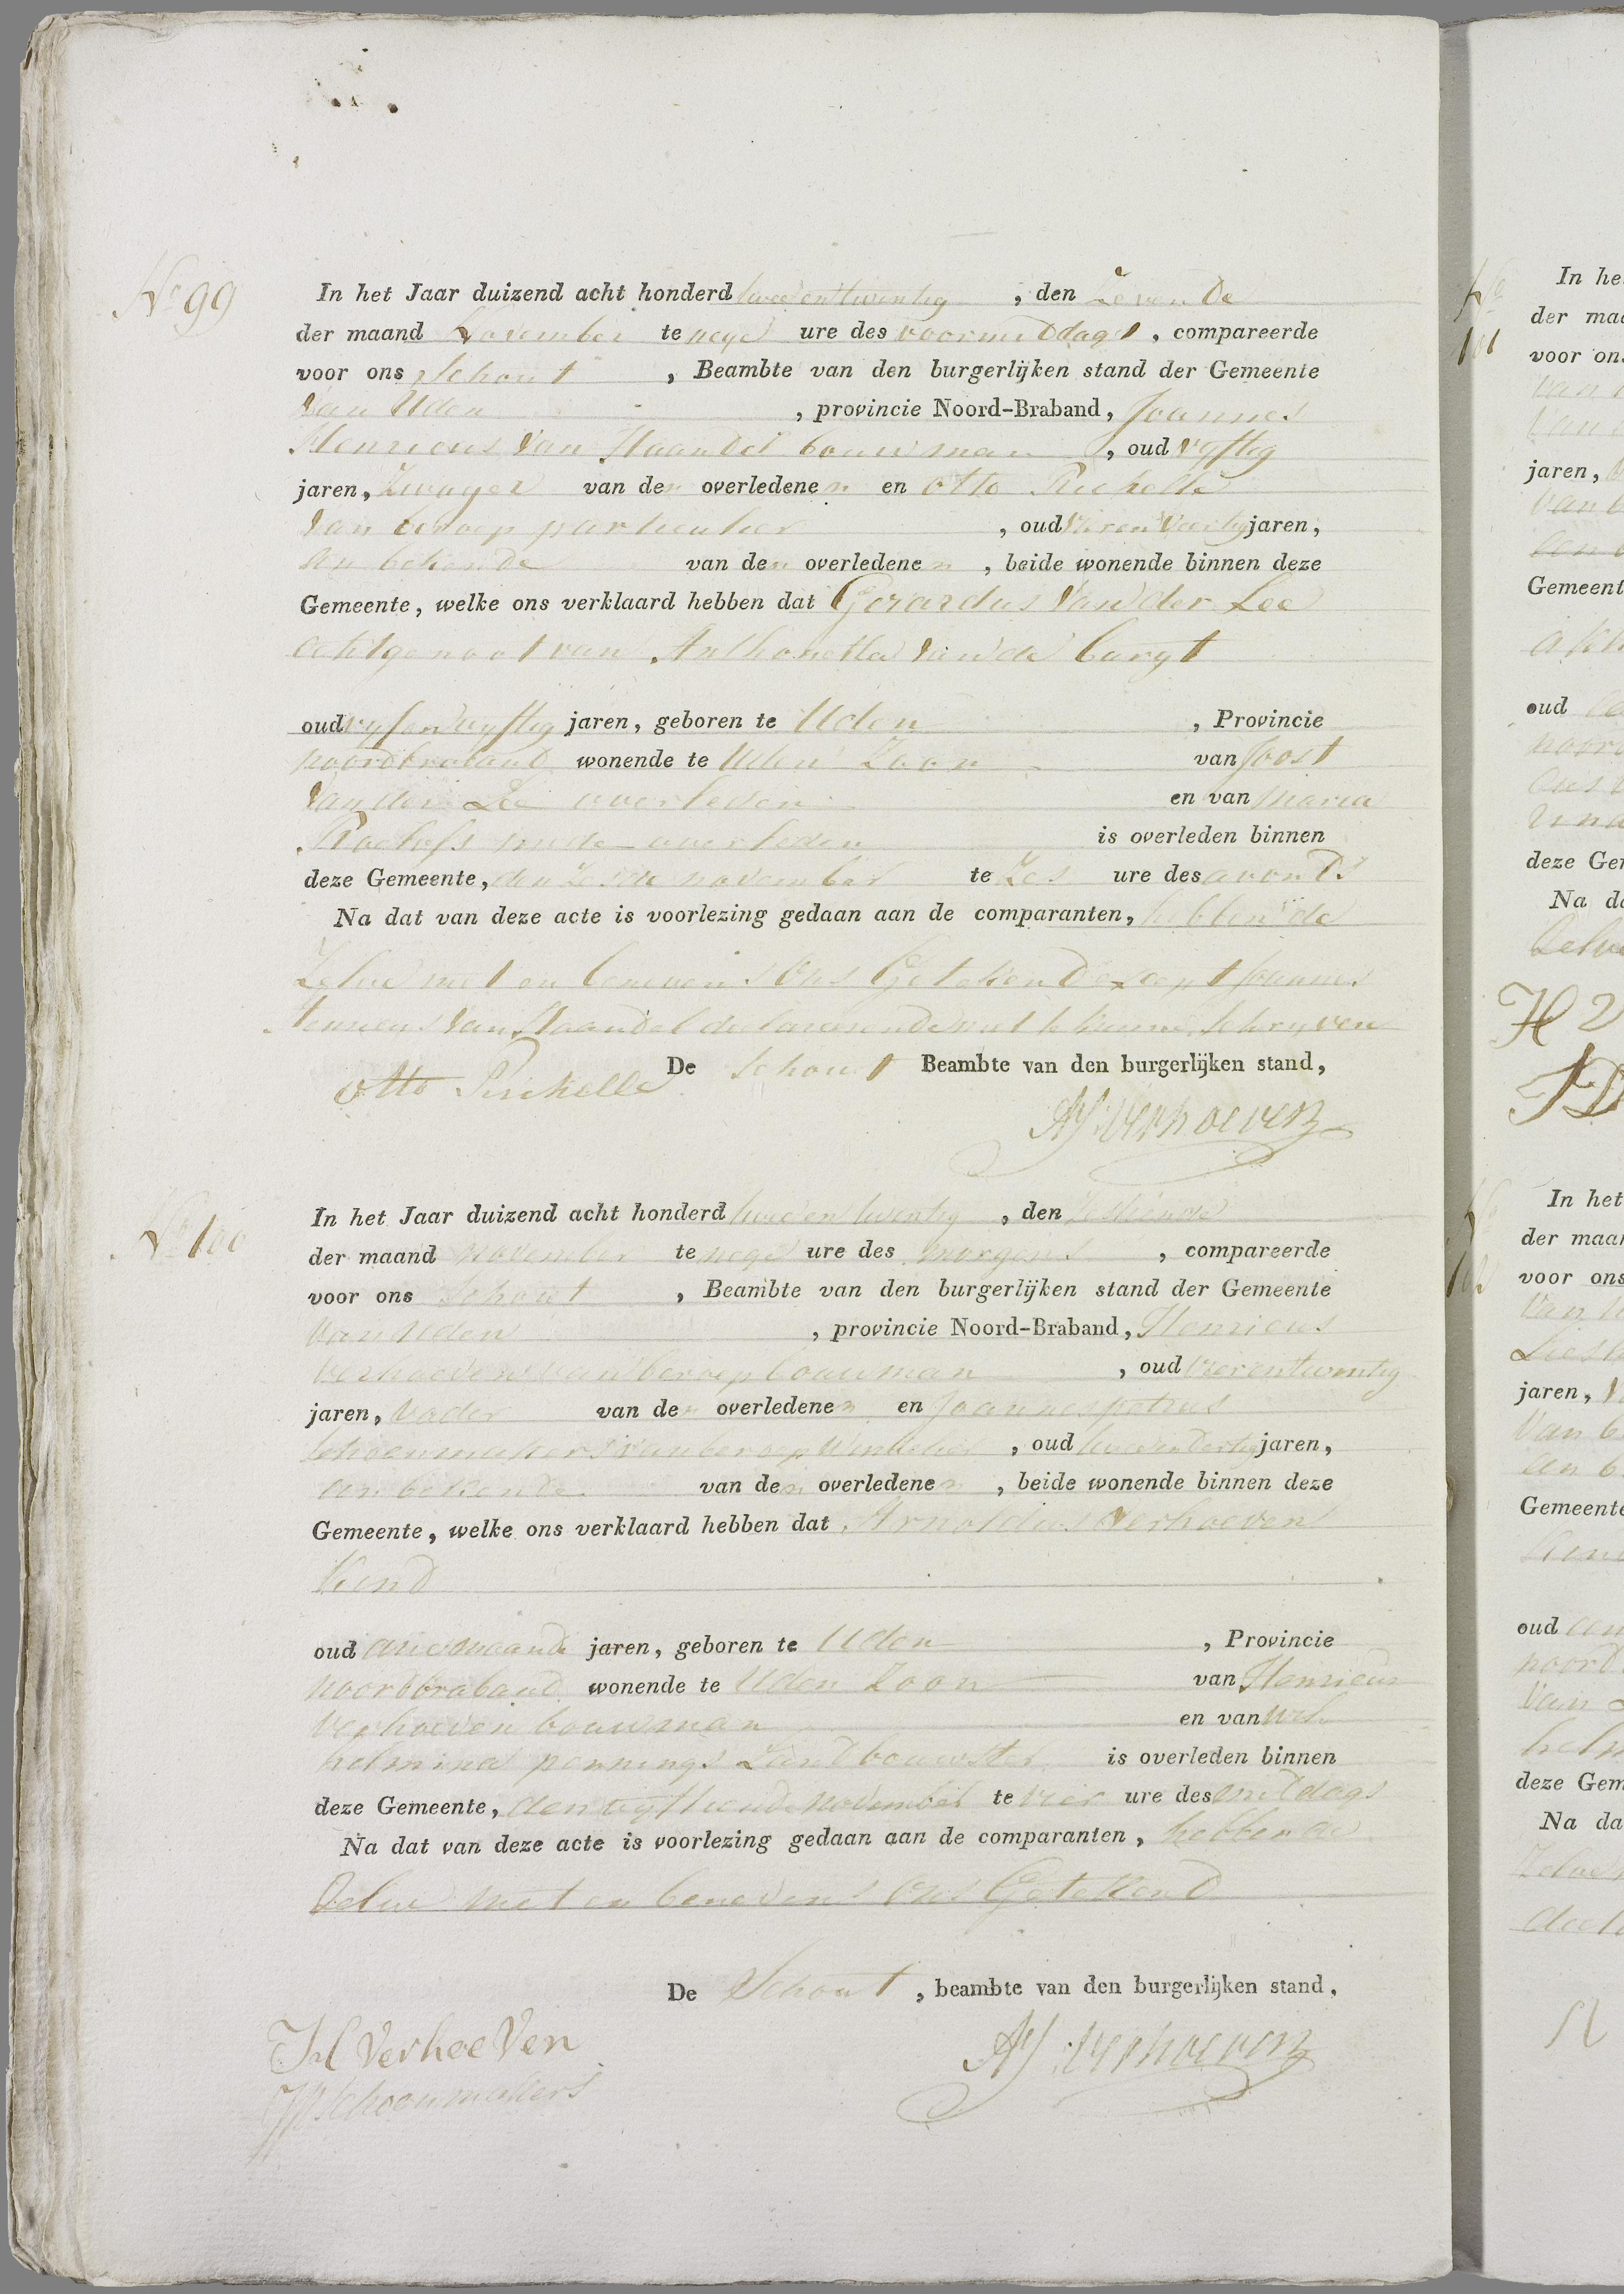 No 99
In het Jaar duizend acht honderd twee en twintig, den Zevende
der maand November te nege ure des voormiddags, compareerde
voor ons Schout, Beambte van den burgerlijken stand der Gemeente
Van Uden, provincie Noord-Braband, Joannes
Henricus Van Haandel bouwman, oud vyftig
jaren, Zwager van den overledenen en Otto Richelle
van beroep particulier, oud jaren,
an bekende van den overledenen, beide wonende binnen deze
Gemeente, welke ons verklaard hebben dat Gerardus Van der Lee
echtgenoot van Anthonetta van de burgt
oud vyfenvyftig jaren, geboren te Uden, Provincie
noordbraband wonende te Uden Zoon van Joost
Van der Lee overleden en van Maria
Roelofs mede overleden is overleden binnen
deze Gemeente, den Zesde november te Zes ure des avonds
Na dat van deze acte is voorlezing gedaan aan de comparanten, hebben de
Zelve met en benevens Ons Getekend except Joannes
Henricus Van Haandel declareerende niet te kunne schryven
De Schout Beambte van den burgerlijken stand,
Otto Richelle
Verhoeven
No 100
In het Jaar duizend acht honderd twee en twintig, den Zestiende
der maand november te nege ure des morgens, compareerde
voor ons Schout, Beambte van den burgerlijken stand der Gemeente
Van Uden, provincie Noord-Braband, Henricus
Verhoeven van beroep bouwman, oud vierentwintig
jaren, Vader van den overledenen en Joannes petrus
schoenmakers van beroep Winkelier, oud jaren,
an bekende van den overledenen, beide wonende binnen deze
Gemeente, welke ons verklaard hebben dat Arnoldus Verhoeven
Kind
oud drie maande jaren, geboren te Uden, Provincie
noordbraband wonende te Uden Zoon van Henricus
Verhoeven bouwman en van wil
helmina pennings Landbouwster is overleden binnen
deze Gemeente, den vyftiende november te vier ure des middags
Na dat van deze acte is voorlezing gedaan aan de comparanten, hebben de
Zelve met en benevens Ons Getekend
De Schout, beambte van den burgerlijken stand.
H Verhoeven
JP Schoenmakers
Verhoeven
No 101
In he
der maa
voor on
jaren,
Gemeent
oud
deze Ger
Na da
In het
der maan
voor ons
jaren,
Gemeente
oud
deze Gem
Na da